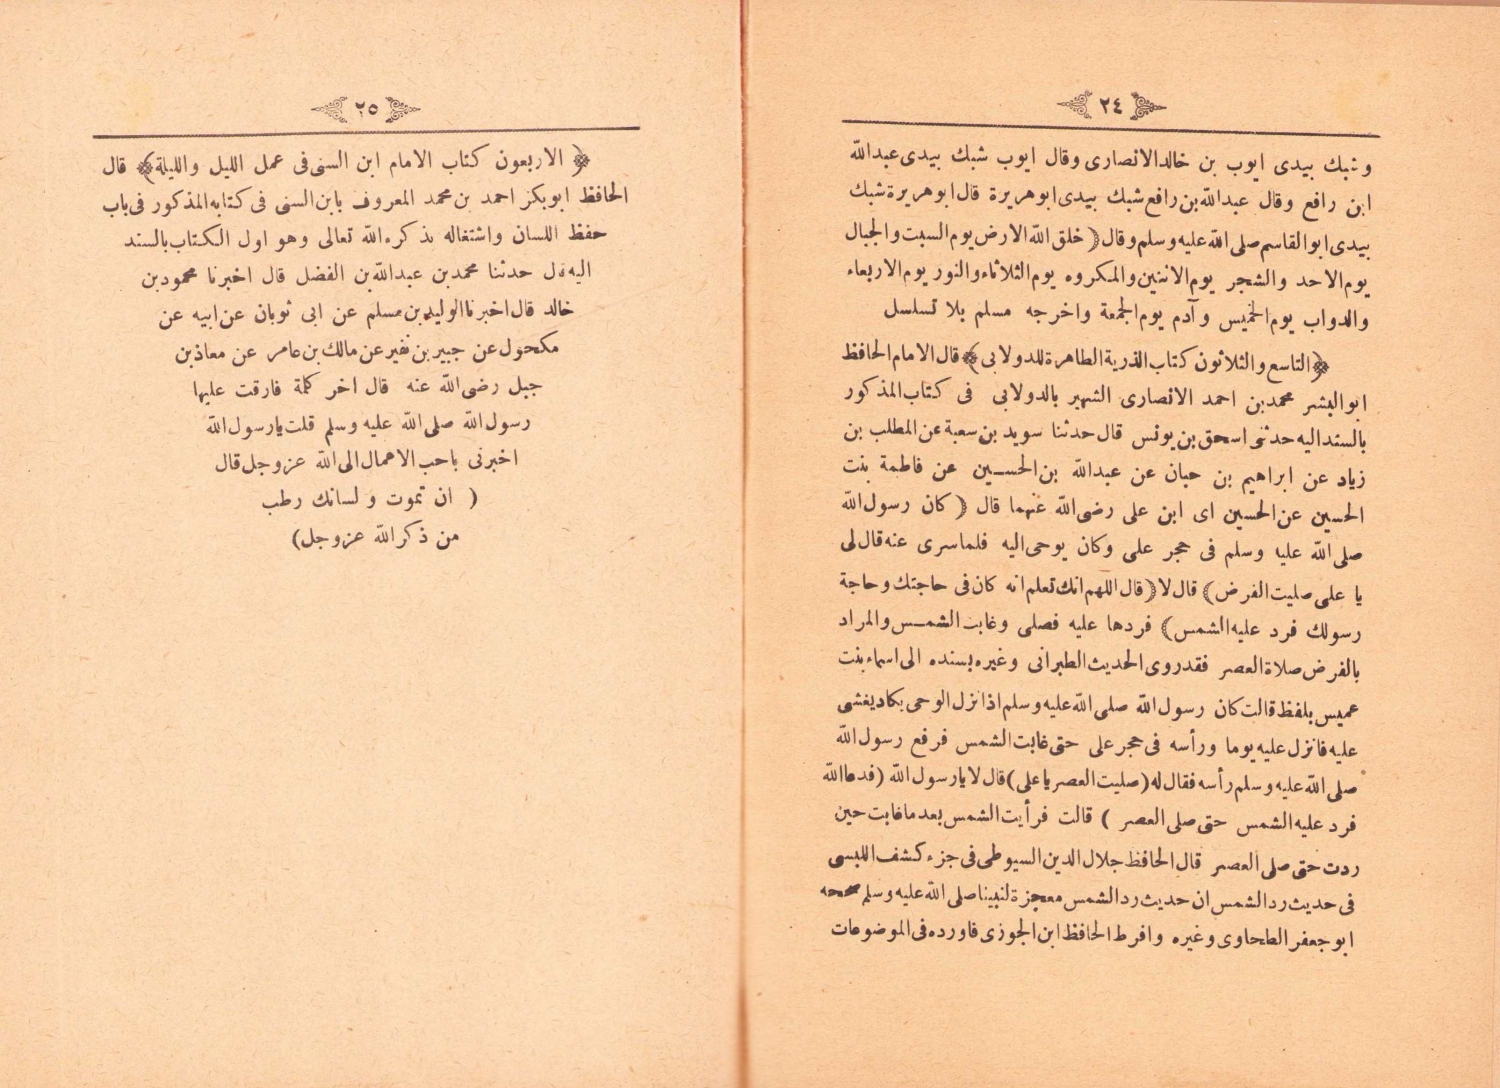 ٢٤
وشبك بيدى ايوب بن خالد الانصارى وقال ايوب شبك بيدى عبدالله
ابن رافع وقال عبدالله بن رافع شبك بيدى ابو هريرة قال ابو هريرة شبك
بيدى ابو القاسم صلى الله عليه وسلم وقال ﴿ خلق الله الارض يوم السبت والجبال
يوم الاحد والشجر يوم الاثنين والمكروه يوم الثلاثاء والنور يوم الاربعاء
والدواب يوم الخميس وآدم يوم الجمعة واخرجه مسلم بلا تسلسل
﴿ التاسع والثلاثون كتاب الذرية الطاهرة للدولابى ﴾ قال الامام الحافظ
ابو البشر محمد بن احمد الانصارى الشهير بالدولابى فى كتاب المذكور
بالسند اليه حدثنى اسحق بن يونس قال حدثنا سويد بن سعبة عن المطلب بن
زياد عن ابراهيم بن حبان عن عبدالله بن الحسين عن فاطمة بنت
الحسين عن الحسين اى ابن على رضى الله عنهما قال ﴿ كان رسول الله
صلى الله عليه وسلم فى حجر على وكان يوحى اليه فلما سرى عنه قال لى
يا على صليت الفرض ﴾ قال لا ﴿ قال اللهم انك تعلم انه كان فى حاجتك وحاجة
رسولك فرد عليه الشمس ﴾ فردها عليه فصلى وغابت الشمس والمراد
بالفرض صلاة العصر فقد روى الحديث الطبرانى وغيره بسنده الى اسماء بنت
عميس بلفظ قالت كان رسول الله صلى الله عليه وسلم اذا نزل الوحى يكاد يغشى
عليه فانزل عليه يوما ورأسه فى حجر على حتى غابت الشمس فرفع رسول الله
صلى الله عليه وسلم رأسه فقال له ( صليت العصر يا على ) قال لا يا رسول الله ( فدعا الله
فرد عليه الشمس حتى صلى العصر ) قالت فرأيت الشمس بعد ما غابت حين
ردت حتى صلى العصر قال الحافظ جلال الدين السيوطى فى جزء كشف اللبسى
فى حديث رد الشمس ان حديث رد الشمس معجزة لنبينا صلى الله عليه وسلم صححه
ابو جعفر الطحاوى وغيره وافرط الحافظ ابن الجوزى فاورده فى الموضوعات
٢٥
﴿ الاربعون كتاب الامام ابن السنى فى عمل الليل والليلة ﴾ قال
الحافظ ابو بكر احمد بن محمد المعروف بابن السنى فى كتابه المذكور فى باب
حفظ اللسان واشتغاله بذكره الله تعالى وهو اول الكتاب بالسند
اليه قال حدثنا محمد بن عبدالله بن الفضل قال اخبرنا محمود بن
خالد قال اخبرنا الوليد بن مسلم عن ابى ثوبان عن ابيه عن
مكحول عن جبير بن نفير عن مالك بن عامر عن معاذ بن
جبل رضى الله عنه قال اخر كلمة فارقت عليها
رسول الله صلى الله عليه وسلم قلت يا رسول الله
اخبرنى باحب الاعمال الى الله عز وجل قال
( ان تموت ولسانك رطب
من ذكر الله عز وجل )